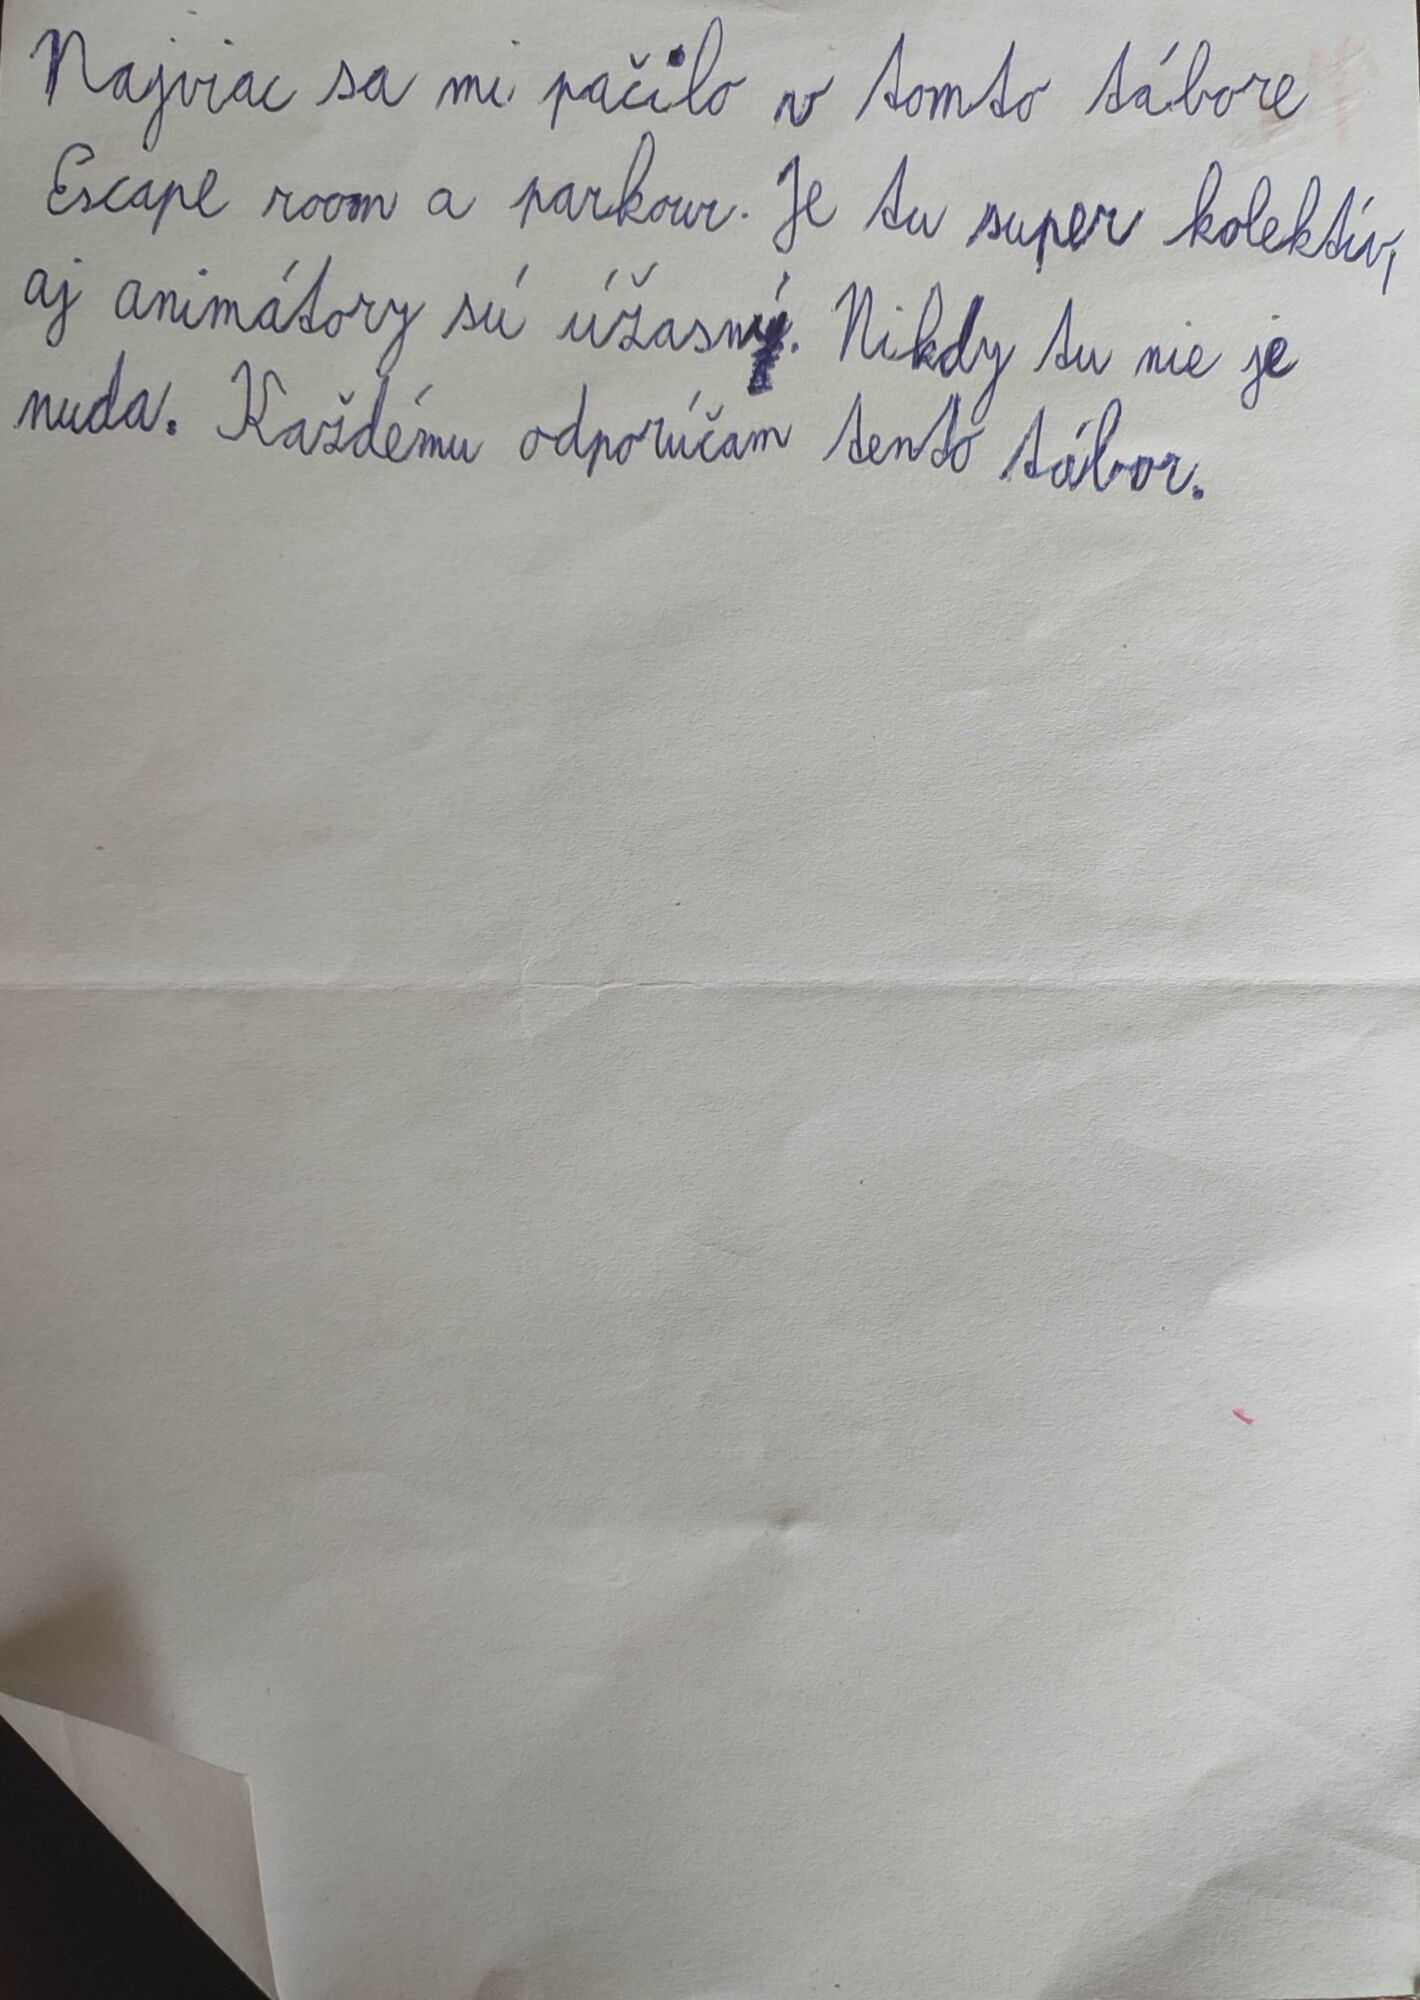 Najviac sa mi páčilo v tomto tábore
Escape room a parkour. Je tu super kolektív,
aj animátory sú úžasný. Nikdy tu nie je
nuda. Každému odporúčam tento tábor.